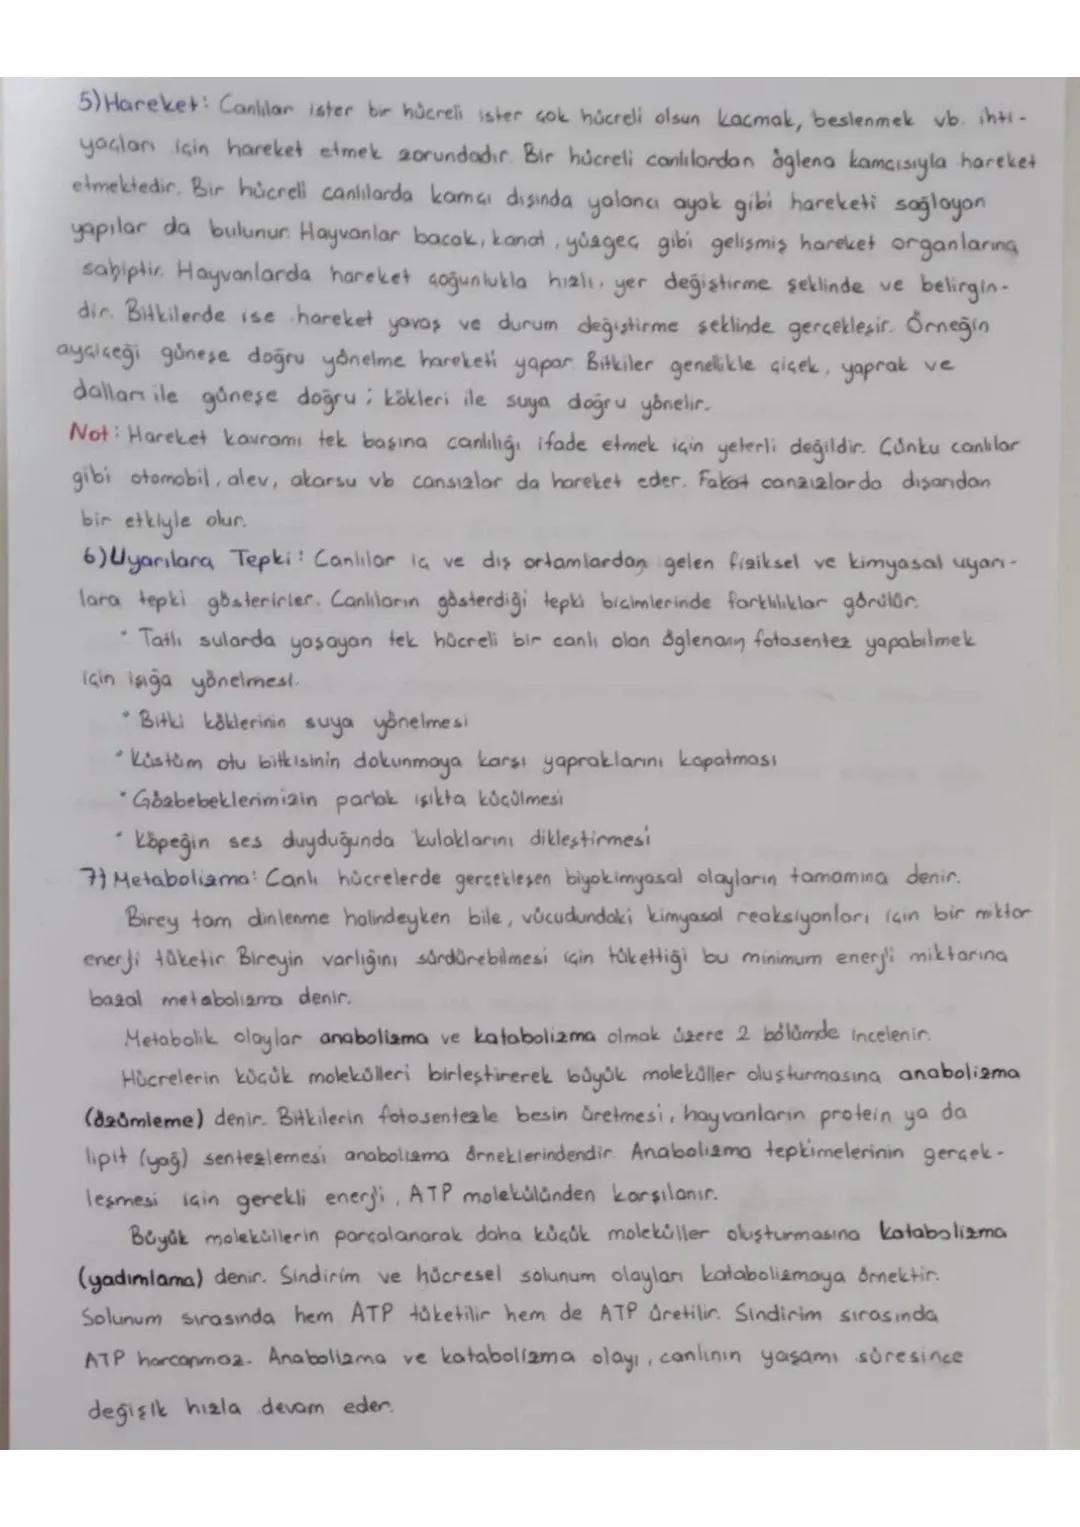 5) Hareket: Canlılar ister bir hücreli ister çok hücreli olsun kaçmak, beslenmek vb. ihti-
yaçları için hareket etmek zorundadır. Bir hücreli canlılardan öglena kamçısıyla hareket
etmektedir. Bir hücreli canlılarda kamçı dışında yalancı ayak gibi hareketi sağlayan
yapılar da bulunur. Hayvanlar bacak, kanat, yüzgeç gibi gelişmiş hareket organlarına
sahiptir. Hayvanlarda hareket çoğunlukla hızlı, yer değiştirme şeklinde ve belirgin-
dir. Bitkilerde ise hareket yavaş ve durum değiştirme şeklinde gerçekleşir. Örneğin
ayçiçeği güneşe doğru yönelme hareketi yapar. Bitkiler genellikle çiçek, yaprak ve
dalları ile güneşe doğru; kökleri ile suya doğru yönelir.
Not: Hareket kavramı tek başına canlılığı ifade etmek için yeterli değildir. Çünku canlılar
gibi otomobil, alev, akarsu vb cansızlar da hareket eder. Fakat canzızlarda dışarıdan
bir etkiyle olur.
6) Uyarılara Tepki: Canlılar iç ve dış ortamlardan gelen fiziksel ve kimyasal uyarı-
lara tepki gösterirler. Canlıların gösterdiği tepki biçimlerinde farklılıklar görülür.
• Tatlı sularda yaşayan tek hücreli bir canlı olan öglenanın fotosentez yapabilmek
için ışığa yönelmesi.
• Bitki köklerinin suya yönelmesi
• Küstüm otu bitkisinin dokunmaya karşı yapraklarını kapatması
• Gözbebeklerimizin parlak ışıkta küçülmesi
• Köpeğin ses duyduğunda kulaklarını dikleştirmesi
7) Metabolizma: Canlı hücrelerde gerçekleşen biyokimyasal olayların tamamına denir.
Birey tam dinlenme halindeyken bile, vücudundaki kimyasal reaksiyonları için bir miktar
enerji tüketir. Bireyin varlığını sürdürebilmesi için tükettiği bu minimum enerji miktarına
bazal metabolizma denir.
Metabolik olaylar anabolizma ve katabolizma olmak üzere 2 bölümde incelenir.
Hücrelerin küçük molekülleri birleştirerek büyük moleküller oluşturmasına anabolizma
(özümleme) denir. Bitkilerin fotosentezle besin üretmesi, hayvanların protein ya da
lipit (yağ) sentezlemesi anabolizma örneklerindendir. Anabolizma tepkimelerinin gerçek-
leşmesi için gerekli enerji, ATP molekülünden karşılanır.
Büyük moleküllerin parçalanarak daha küçük moleküller oluşturmasına katabolizma
(yadımlama) denir. Sindirim ve hücresel solunum olayları katabolizmaya örnektir.
Solunum sırasında hem ATP tüketilir hem de ATP üretilir. Sindirim sırasında
ATP harcanmaz. Anabolizma ve katabolizma olayı, canlının yaşamı süresince
değişik hızla devam eder.